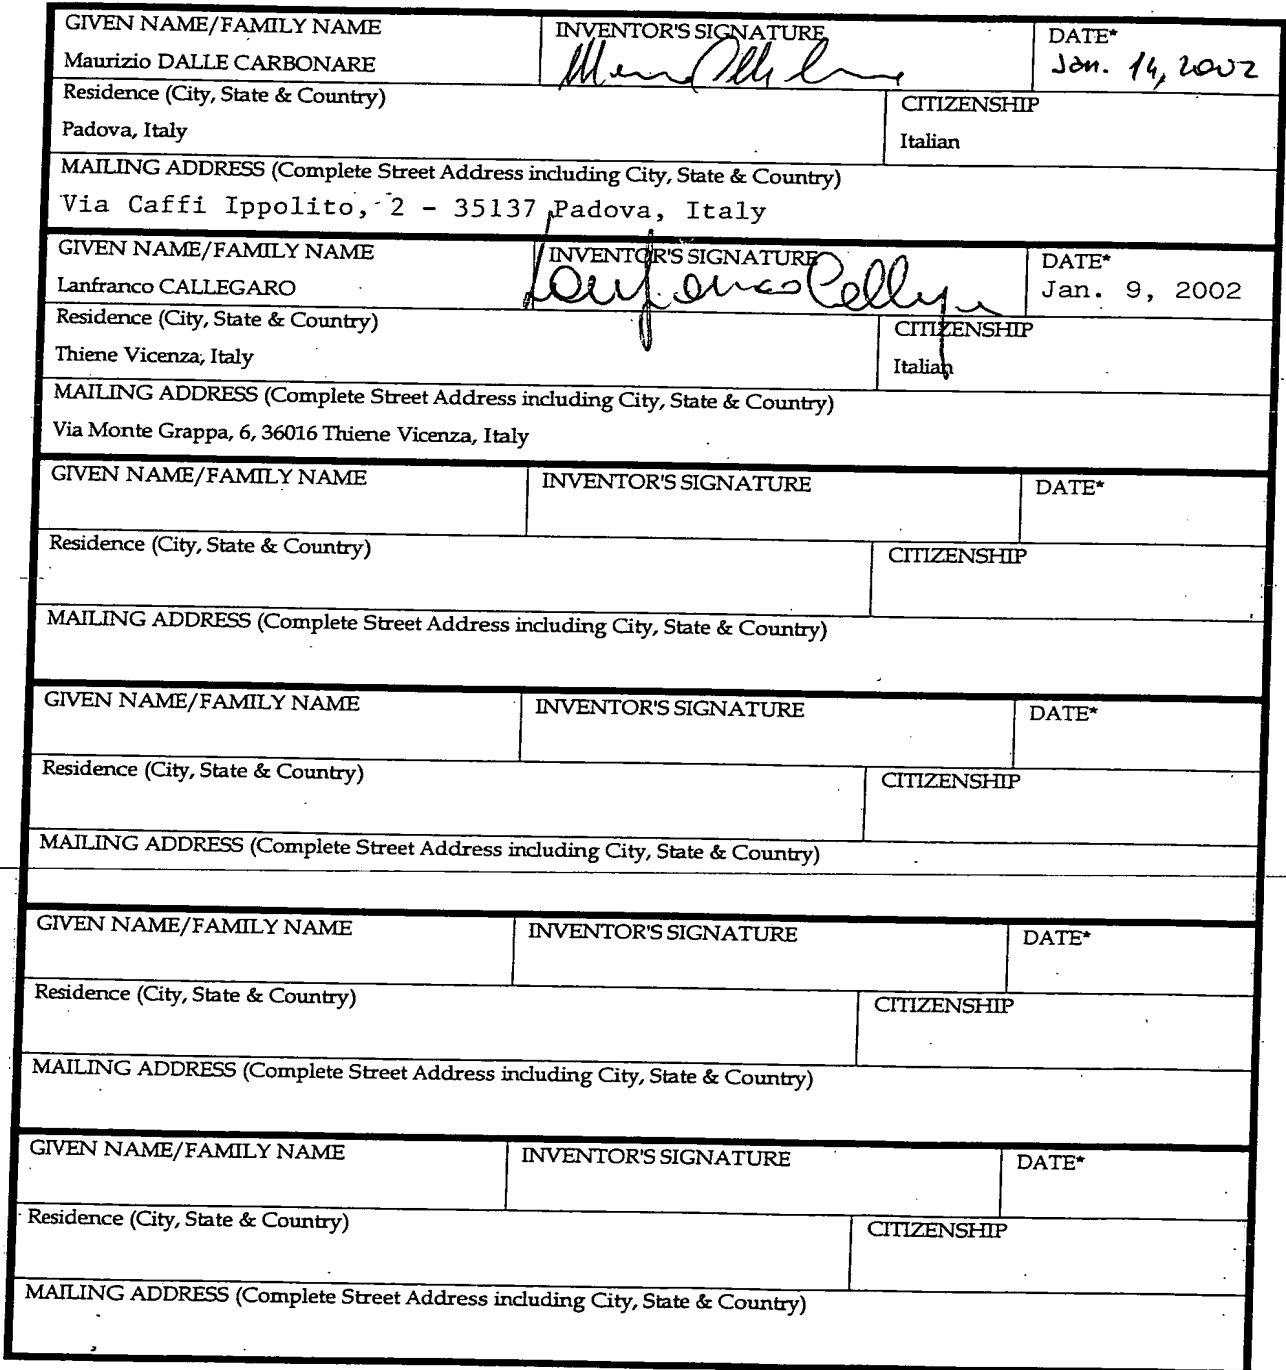 GIVEN NAME/FAMILY NAME INVENTOR'S SIGNATURE DATE*
Maurizio DALLE CARBONARE Jan. 14, 2002
Residence (City, State & Country) CITIZENSHIP
Padova, Italy Italian
MAILING ADDRESS (Complete Street Address including City, State & Country)
Via Caffi Ippolito, 2 - 35137 Padova, Italy
GIVEN NAME/FAMILY NAME INVENTOR'S SIGNATURE DATE*
Lanfranco CALLEGARO Lanfranco Jan. 9, 2002
Residence (City, State & Country) CITIZENSHIP
Thiene Vicenza, Italy Italian
MAILING ADDRESS (Complete Street Address including City, State & Country)
Via Monte Grappa, 6, 36016 Thiene Vicenza, Italy
GIVEN NAME/FAMILY NAME INVENTOR'S SIGNATURE DATE*
Residence (City, State & Country) CITIZENSHIP
MAILING ADDRESS (Complete Street Address including City, State & Country)
GIVEN NAME/FAMILY NAME INVENTOR'S SIGNATURE DATE*
Residence (City, State & Country) CITIZENSHIP
MAILING ADDRESS (Complete Street Address including City, State & Country)
GIVEN NAME/FAMILY NAME INVENTOR'S SIGNATURE DATE*
Residence (City, State & Country) CITIZENSHIP
MAILING ADDRESS (Complete Street Address including City, State & Country)
GIVEN NAME/FAMILY NAME INVENTOR'S SIGNATURE DATE*
Residence (City, State & Country) CITIZENSHIP
MAILING ADDRESS (Complete Street Address including City, State & Country)